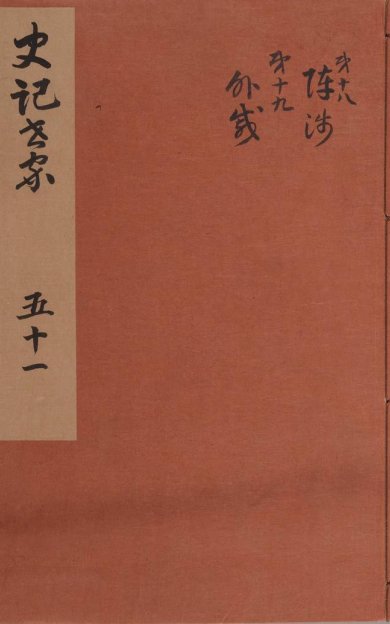 史记世家 五十一
第十八
陈涉
第十九
外戚